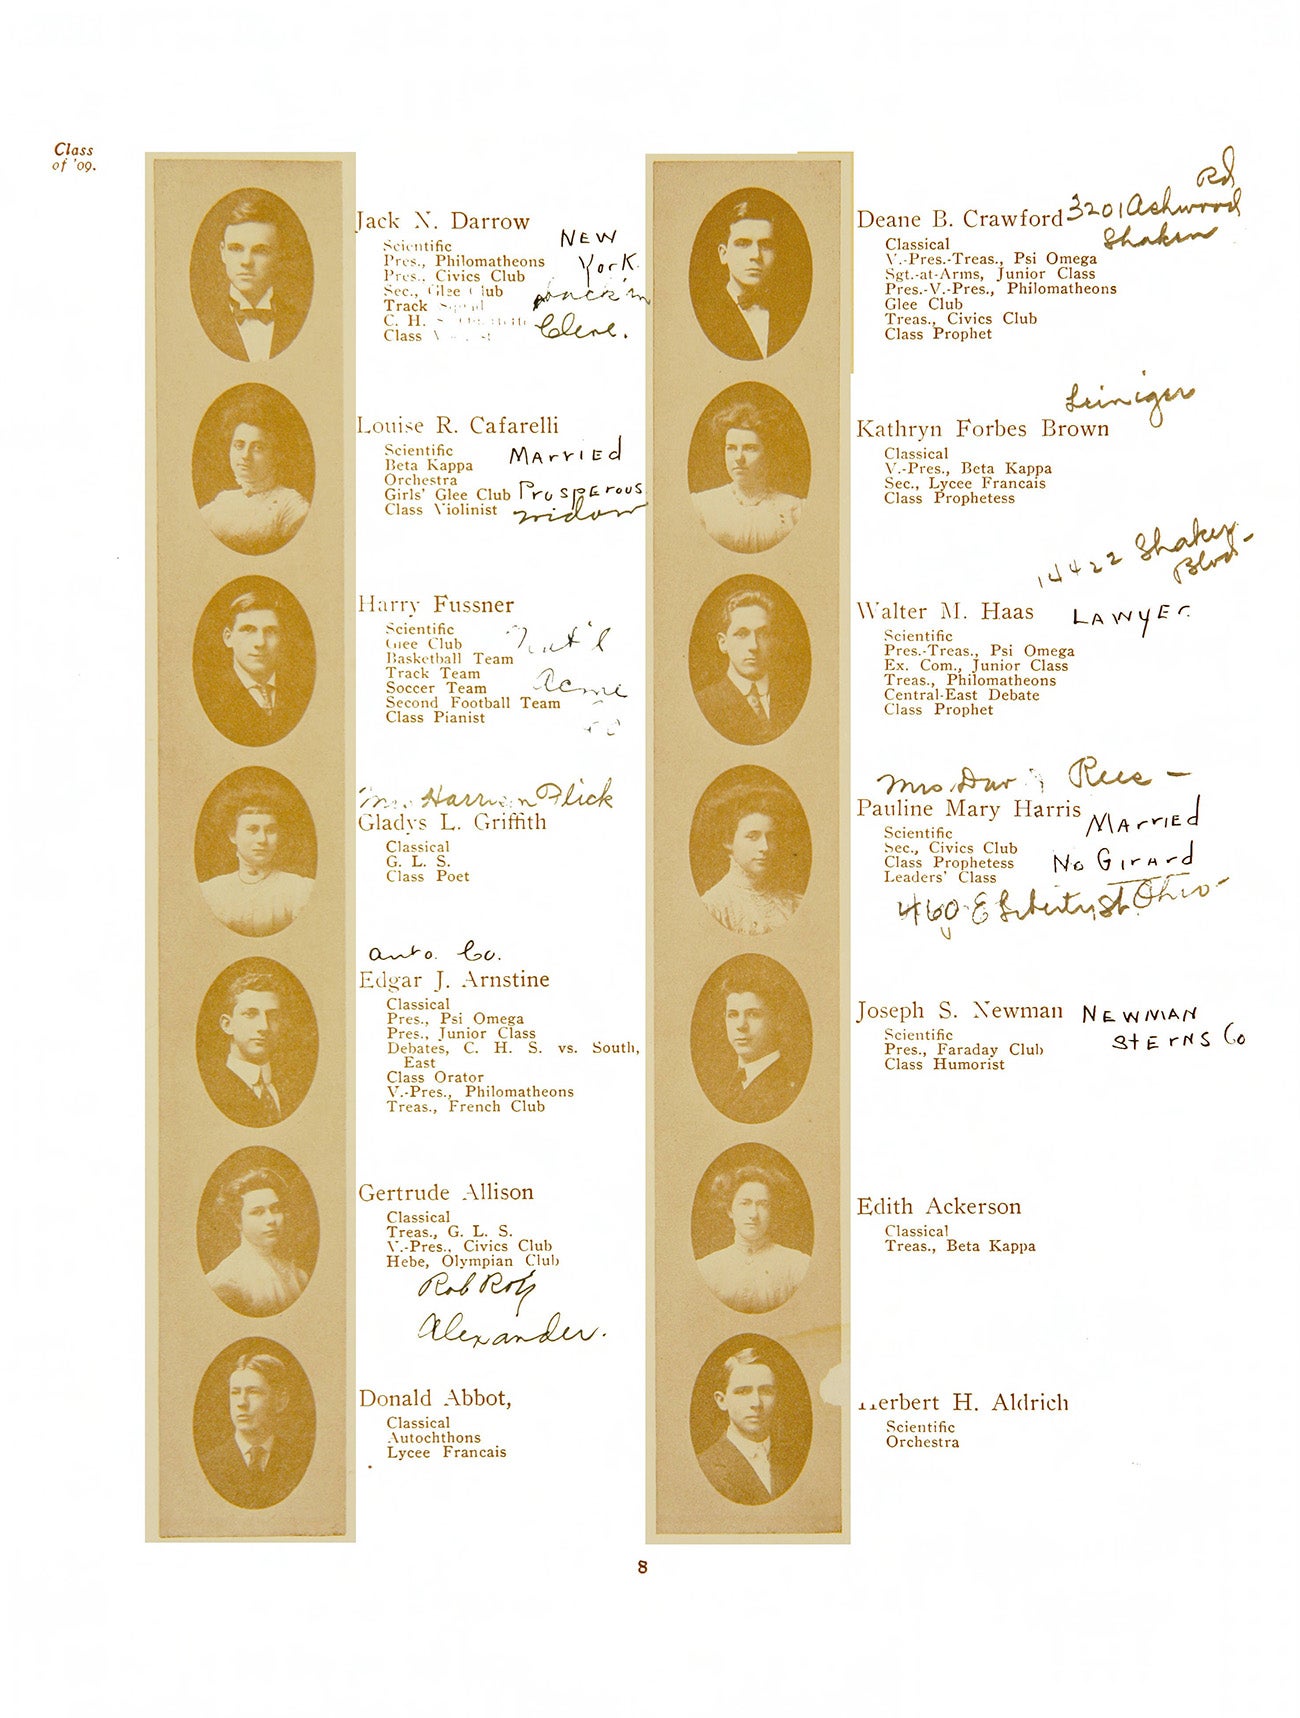 Class
of '09.
Jack N. Darrow
Scientific
NEW
Pres., Philomatheons
York.
Pres., Civics Club
Sec., Glee Club
back in
Track
C. H.
Cleve.
Class
Louise R. Cafarelli
Scientific
MArriEd
Beta Kappa
Orchestra
Girls' Glee Club
ProspErous
Class Violinist
widow
Harry Fussner
Scientific
Glee Club
Nat'l
Basketball Team
Track Team
Soccer Team
Acme
Second Football Team
Class Pianist
Co
Mrs. Harrison Flick
Gladys L. Griffith
Classical
G. L. S.
Class Poet
Auto. Co.
Edgar J. Arnstine
Classical
Pres., Psi Omega
Pres., Junior Class
Debates, C. H. S. vs. South,
East
Class Orator
V.-Pres., Philomatheons
Treas., French Club
Gertrude Allison
Classical
Treas., G. L. S.
V.-Pres., Civics Club
Hebe, Olympian Club
Rob Roy
Alexander.
Donald Abbot,
Classical
Autochthons
Lycee Francais
Rd
3201 Ashwood
Deane B. Crawford
Shaker
Classical
V.-Pres.-Treas., Psi Omega
Sgt.-at-Arms, Junior Class
Pres.-V.-Pres., Philomatheons
Glee Club
Treas., Civics Club
Class Prophet
Leiniger
Kathryn Forbes Brown
Classical
V.-Pres., Beta Kappa
Sec., Lycee Francais
Class Prophetess
14422 Shaker
Blvd-
Walter M. Haas
LAWyEr
Scientific
Pres.-Treas., Psi Omega
Ex. Com., Junior Class
Treas., Philomatheons
Central-East Debate
Class Prophet
Mrs. Dav Rees -
Pauline Mary Harris
MArriEd
Scientific
Sec., Civics Club
Class Prophetess
No GirArd
Leaders' Class
460 E Liberty St. Ohio-
Joseph S. Newman
NEWMAN
StErNS Co
Scientific
Pres., Faraday Club
Class Humorist
Edith Ackerson
Classical
Treas., Beta Kappa
Herbert H. Aldrich
Scientific
Orchestra
8